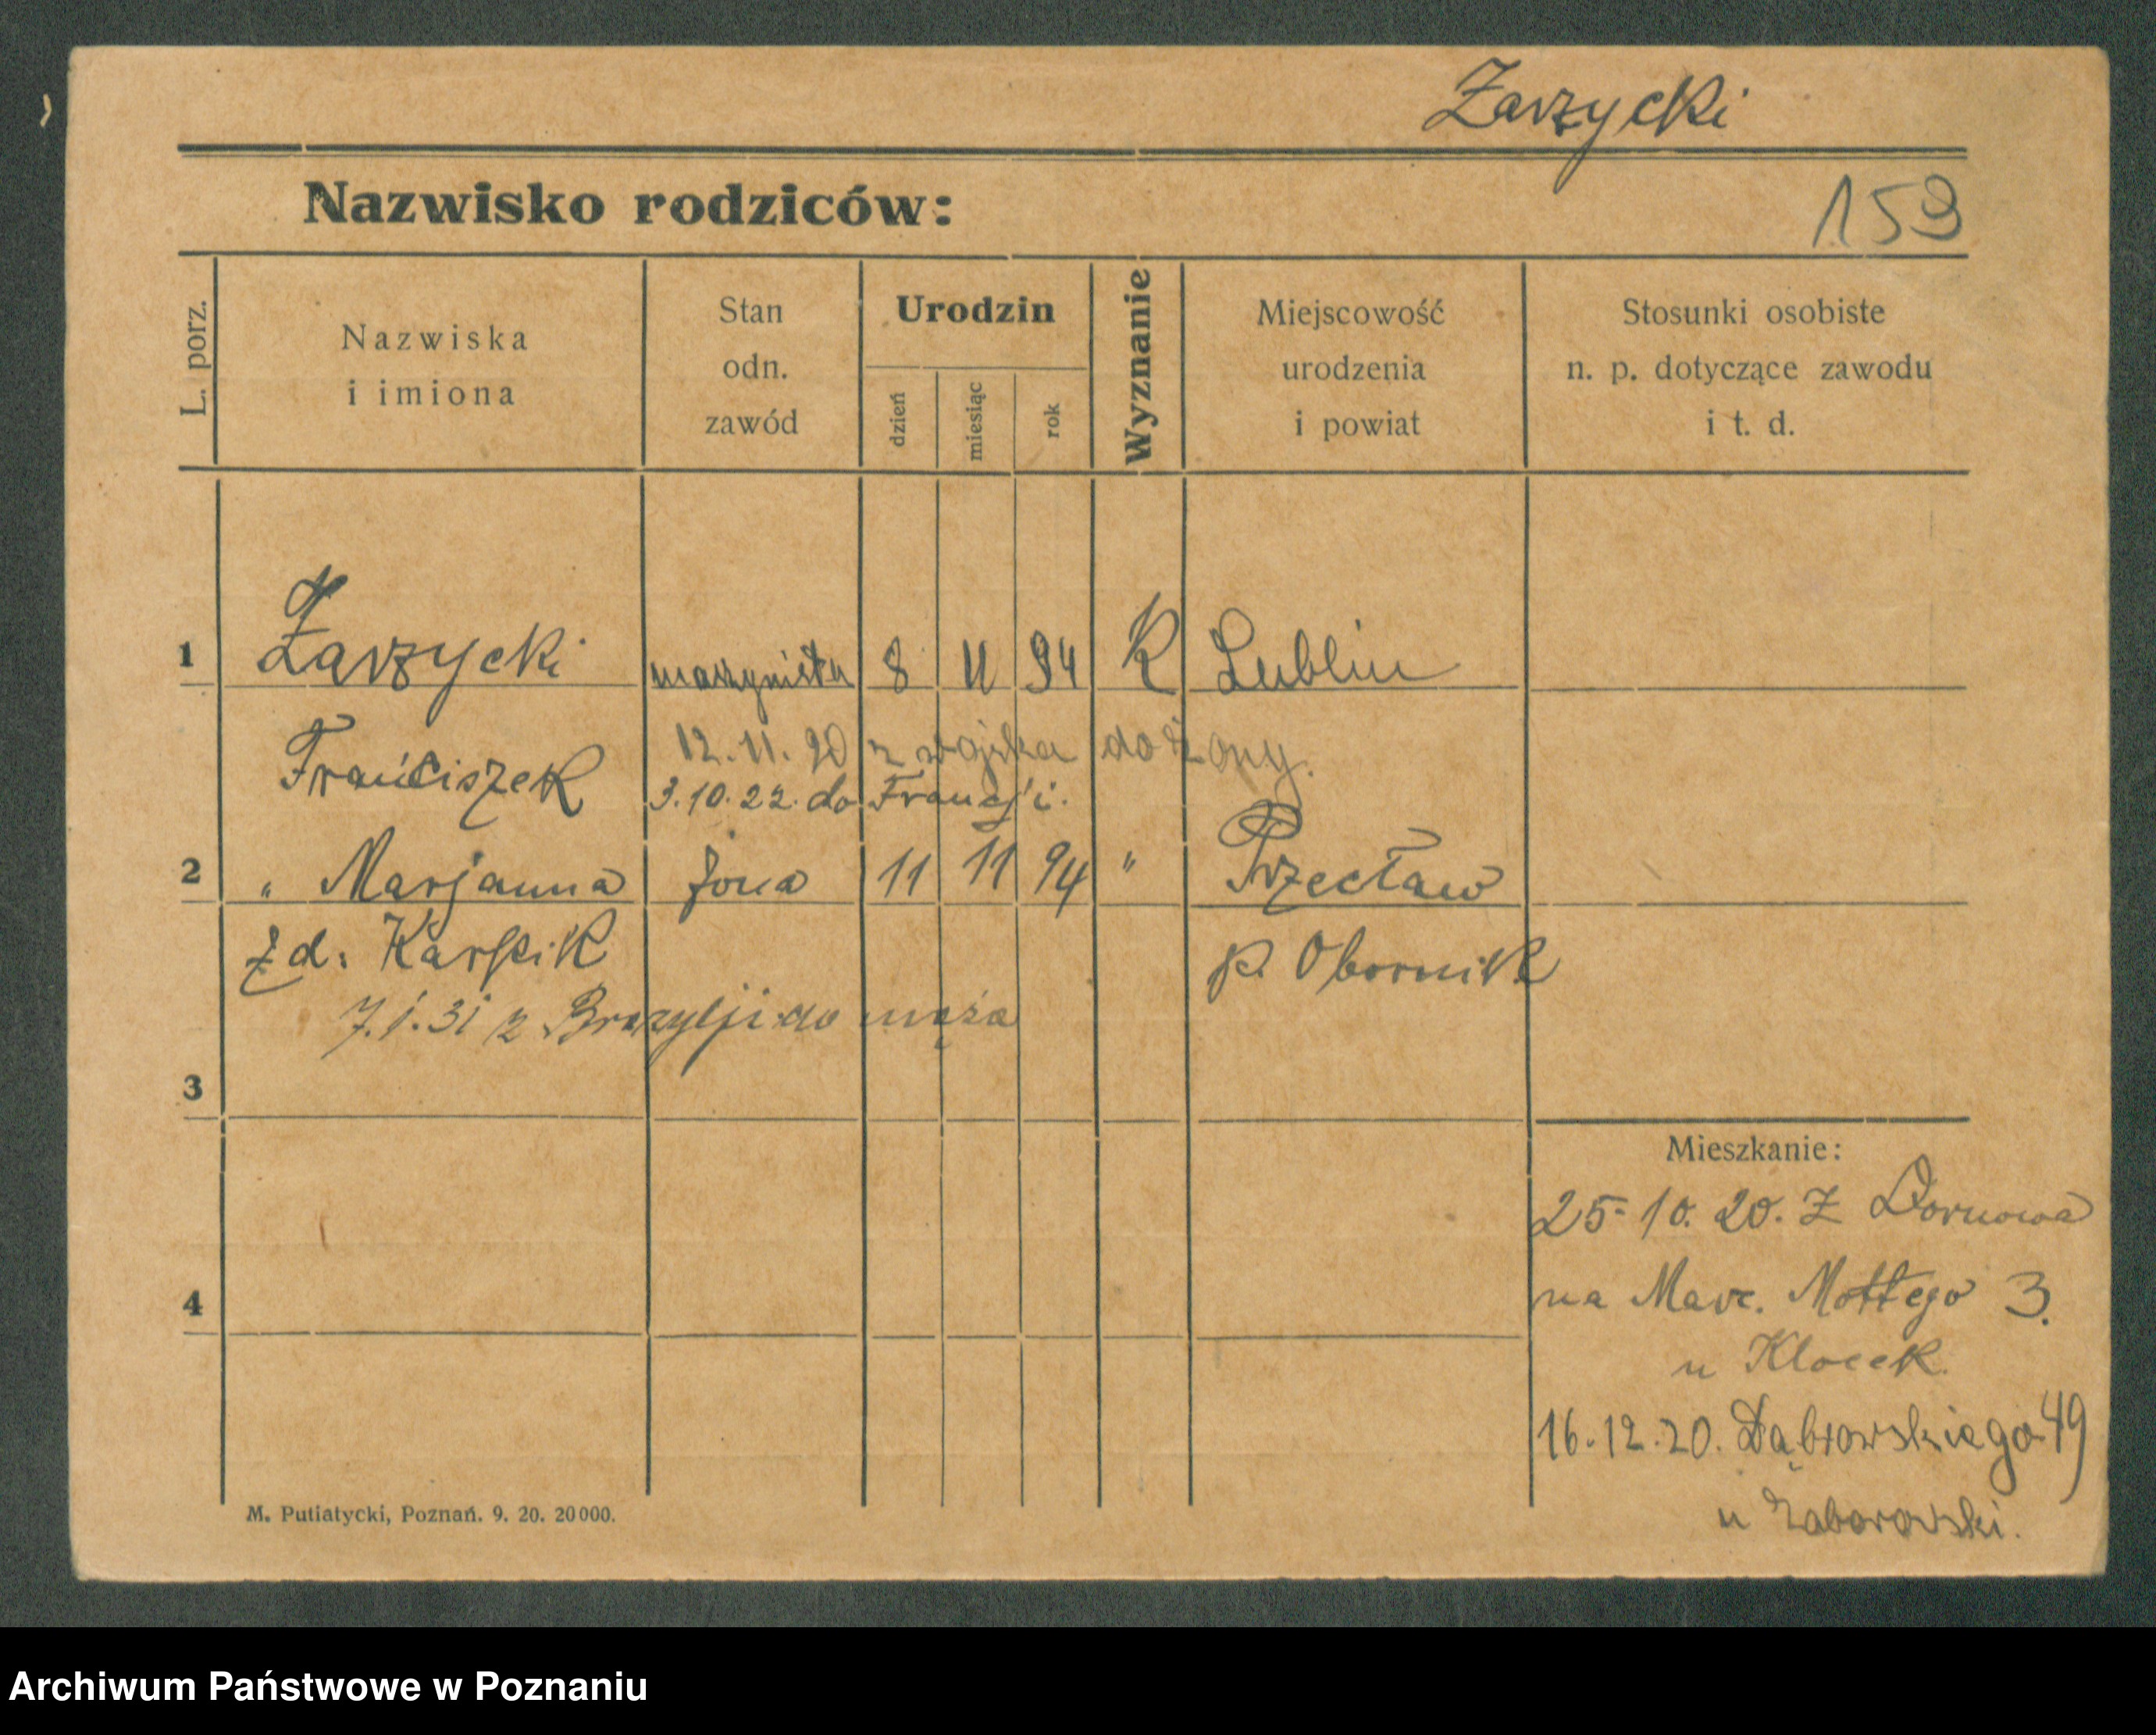 Zarzycki
Nazwisko rodziców:
159
L. porz.
Nazwiska
i imiona
Stan
odn.
zawód
Urodzin
dzień
miesiąc
rok
Wyznanie
Miejscowość
urodzenia
i powiat
Stosunki osobiste
n. p. dotyczące zawodu
i t. d.
1 Zarzycki maszynista 8 11 94 K Lublin
12.11.20 z wojska do żony.
Franciszek
3.10.22. do Francji.
2 " Marjanna żona 11 11 94 " Przecław
zd. Karpik p. Obornik
7.1.31 z Brazylji do męża
3
Mieszkanie:
25-10.20. Z Dornowa
na Marc. Mottego 3.
4
u Klocek.
16.12.20. Dąbrowskiego 49
u Zaborowski.
M. Putiatycki, Poznań. 9. 20. 20000.
Archiwum Państwowe w Poznaniu